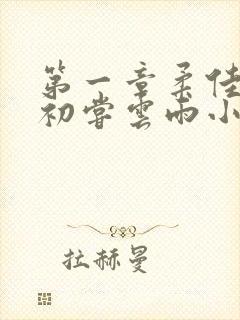 第一章柔佳
初尝雲雨小
拉赫曼